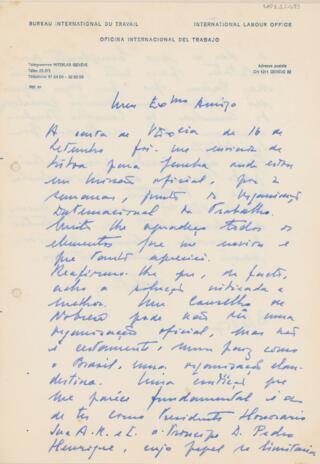 BUREAU INTERNATIONAL DU TRAVAIL
INTERNATIONAL LABOUR OFFICE
OFICINA INTERNACIONAL DEL TRABAJO
Télégrammes INTERLAB GENÈVE
Télex 22.271
Adresse postale
CH 1211 GENÈVE 22
Réf. n°
Meu Exmo Amigo
A carta de V. Excia de 16 de
Setembro foi-me enviada de
Lisboa para Genebra onde estou
em missão oficial, por 2
semanas, junto da Organização
Internacional do Trabalho.
Muito lhe agradeço todos os
elementos que me enviou e
que muito apreciei.
Reafirmo-lhe que, de facto,
acho a posição
melhor. Um Conselho de
Nobreza pode não ser uma
organização oficial, mas não
é certamente, num país como
o Brasil, uma organização clan-
destina. Uma entidade que
me parece fundamental é a
de ter como Presidente Honorário
Sua A. R. e I. o Príncipe D. Pedro
Henrique, cujo papel se limitaria